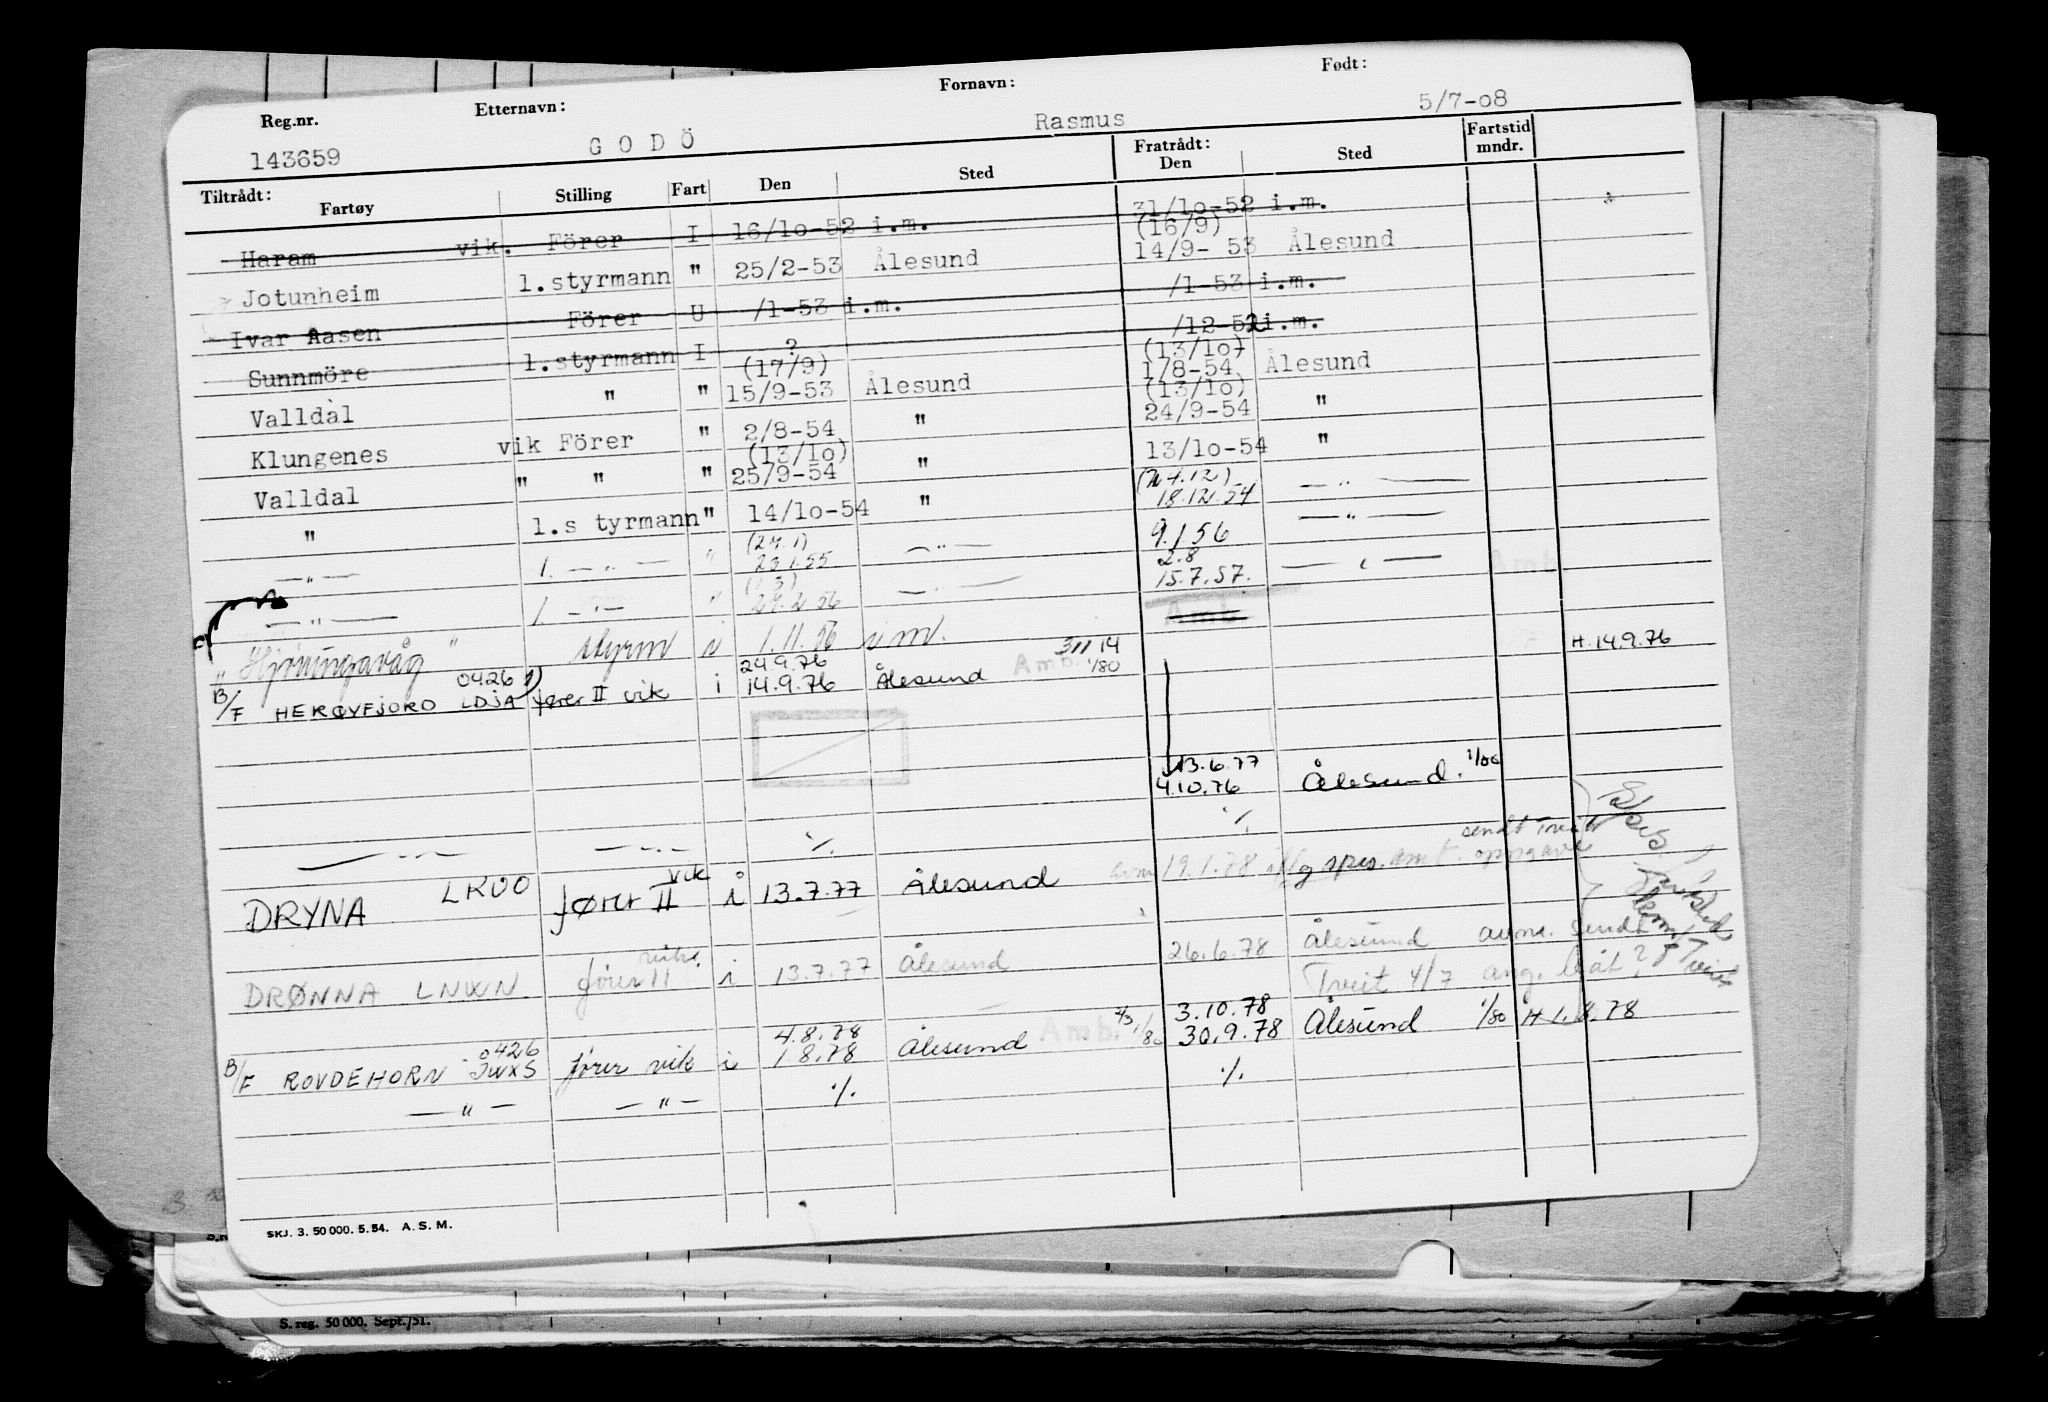 Reg.nr. Etternavn: Fornavn: Født:
143659 GODÖ Rasmus 5/7-08
Tiltrådt: Fratrådt: Fartstid mndr.
Fartøy Stilling Fart Den Sted Den Sted
Haram vik. Förer I 16/10-52 i.m. 31/10-52 i.m.
(16/9)
Jotunheim 1.styrmann " 25/2-53 Ålesund 14/9- 53 Ålesund
Ivar Aasen Förer U /1-53 i.m. /1-53 i.m.
Sunnmöre 1.styrmann I ? /12-52 i.m.
(17/9) (13/10)
Valldal " " 15/9-53 Ålesund 1/8-54 Ålesund
(13/10)
Klungenes vik Förer " 2/8-54 " 24/9-54 "
(13/10)
Valldal " " " 25/9-54 " 13/10-54 "
(24.12)
" 1.s tyrmann " 14/10-54 " 18.12.54 — " —
(24.1)
— " — 1. — " — " 23.1.55 — " — 9.1.56 — " —
(1.3) 2.8
— " — 1 — " — " 27.2.56 — " — 15.7.57. — " — Amb
Amb
"Hjørungavåg" styrm i 1.11.56 i m.
0426 1) 24.9.76 Amb. 3/11 14 1/80 H.14.9.76
B/F HERØYFJORD LDJA fører II vik i 14.9.76 Ålesund
13.6.77
4.10.76 Ålesund. 1/80
— " — — " — ./. ./.
sendt Tveit
DRYNA LKUO fører II vik i 13.7.77 Ålesund 19.1.78 spes. amt. oppgave
DRØNNA LNWN fører II i 13.7.77 Ålesund 26.6.78 Ålesund avm. sendt
Tveit 4/7 ang. båt?
4.8.78 3.10.78
B/F ROVDEHORN 0426 JWXS fører vik i 1.8.78 Ålesund Amb. 1/80 30.9.78 Ålesund 1/80 H 1.8.78
— " — — " — ./. ./.
SKJ. 3. 50 000. 5. 54. A. S. M.
S. reg. 50 000. Sept./51.